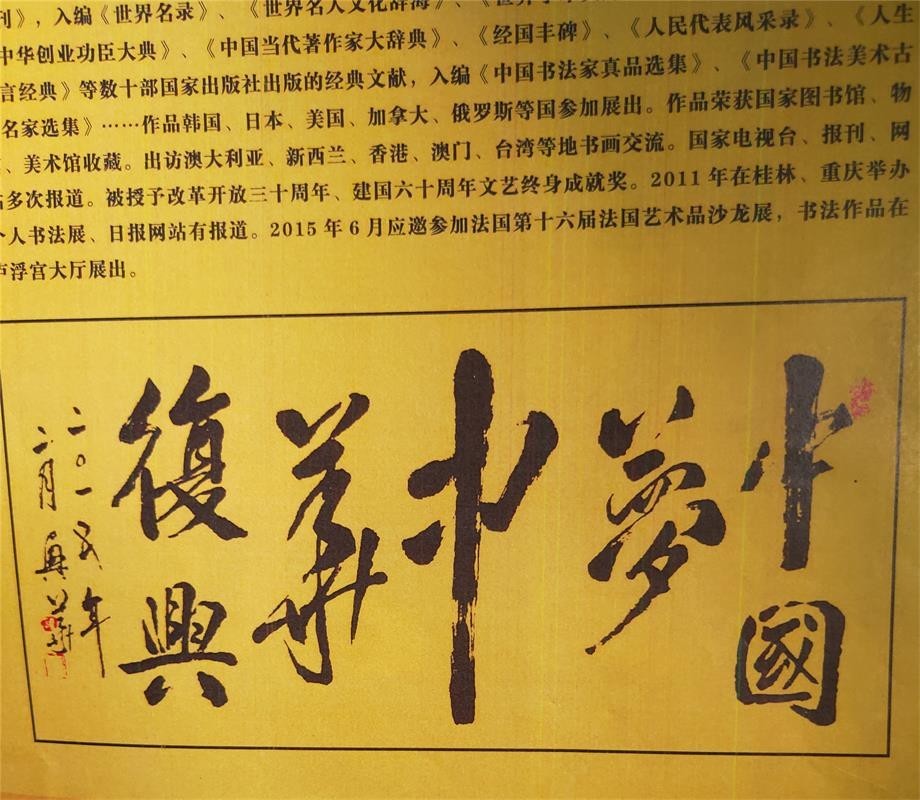 刊》，入编《世界名录》、《世界名人文化辞海》、
中华创业功臣大典》、《中国当代著作家大辞典》、《经国丰碑》、《人民代表风采录》、《人生
言经典》等数十部国家出版社出版的经典文献，入编《中国书法家真品选集》、《中国书法美术古
名家选集》……作品韩国、日本、美国、加拿大、俄罗斯等国参加展出。作品荣获国家图书馆、物
、美术馆收藏。出访澳大利亚、新西兰、香港、澳门、台湾等地书画交流。国家电视台、报刊、网
站多次报道。被授予改革开放三十周年、建国六十周年文艺终身成就奖。2011年在桂林、重庆举办
个人书法展、日报网站有报道。2015年6月应邀参加法国第十六届法国艺术品沙龙展，书法作品在
卢浮宫大厅展出。
中國
夢
中
華
復興
二〇一五年
二月興華